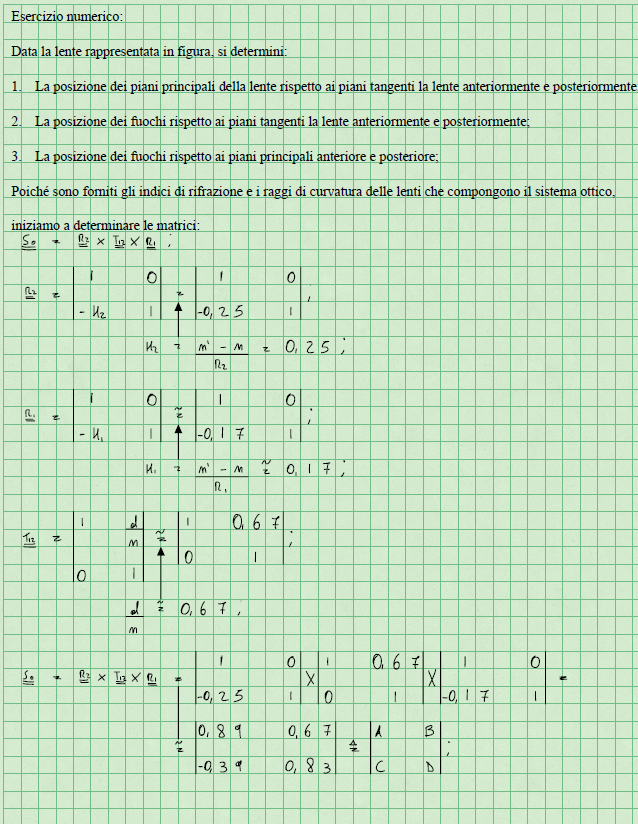 Esercizio numerico:
Data la lente rappresentata in figura, si determini:
1. La posizione dei piani principali della lente rispetto ai piani tangenti la lente anteriormente e posteriormente
2. La posizione dei fuochi rispetto ai piani tangenti la lente anteriormente e posteriormente;
3. La posizione dei fuochi rispetto ai piani principali anteriore e posteriore;
Poiché sono forniti gli indici di rifrazione e i raggi di curvatura delle lenti che compongono il sistema ottico,
iniziamo a determinare le matrici:
S₀ = R₂ × T₁₂ × R₁ ;
R₂ = | 1 0 | = | 1 0 | ;
| - K₂ 1 | | -0,25 1 |
K₂ = n' - n = 0,25 ;
R₂
R₁ = | 1 0 | ≃ | 1 0 | ;
| - K₁ 1 | | -0,17 1 |
K₁ = n' - n ≃ 0,17 ;
R₁
T₁₂ = | 1 d/n | ≃ | 1 0,67 | ;
| 0 1 | | 0 1 |
d ≃ 0,67 ;
n
S₀ = R₂ × T₁₂ × R₁ = | 1 0 | × | 1 0,67 | × | 1 0 | =
| -0,25 1 | | 0 1 | | -0,17 1 |
≃ | 0,89 0,67 | ≙ | A B | ;
| -0,39 0,83 | | C D |